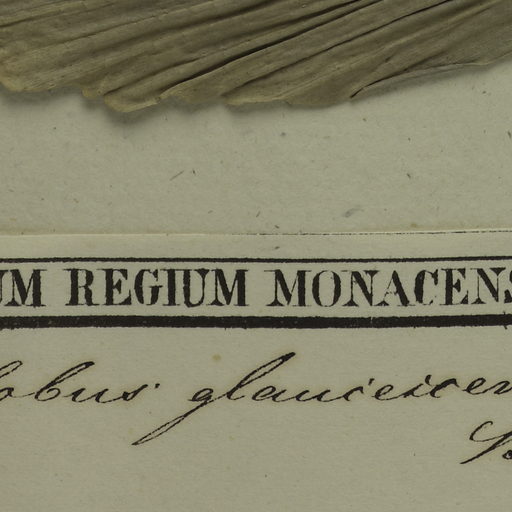 UM REGIUM MONACENS
lobus glaucescen